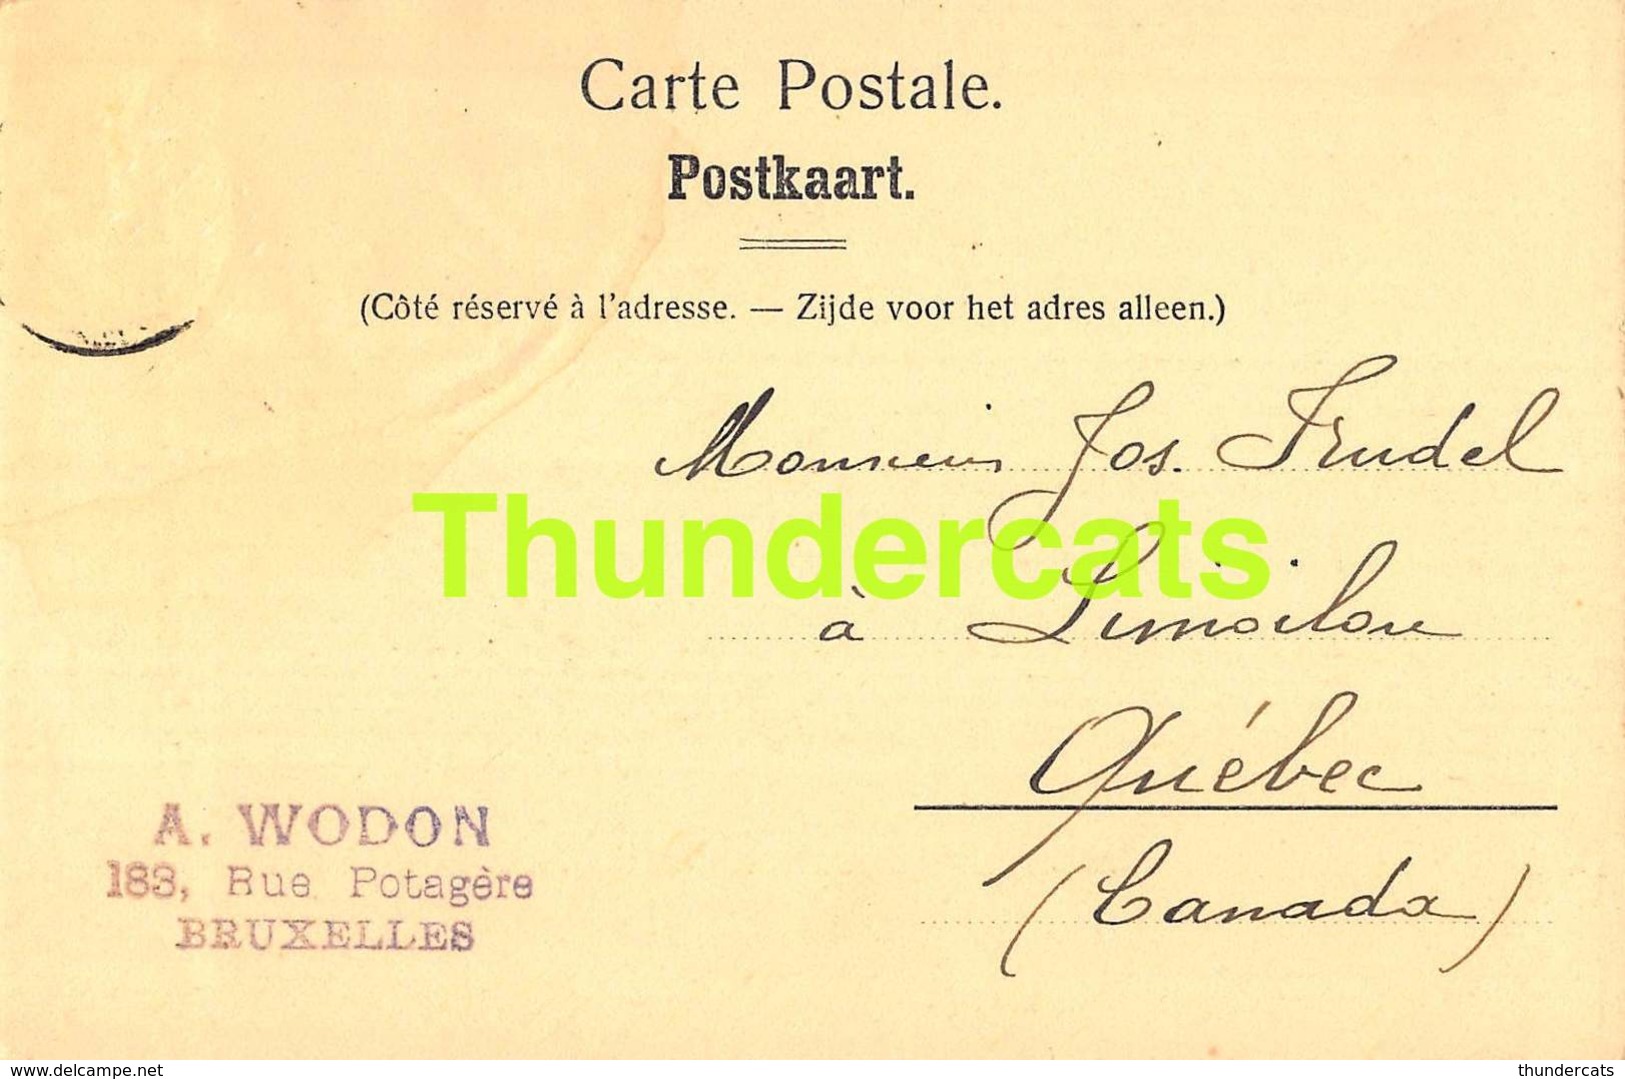 Carte Postale.
Postkaart.
(Côté réservé à l'adresse. — Zijde voor het adres alleen.)
Monsieur Jos. Trudel
Thundercats
à Limoilou
Québec
(Canada)
A. WODON
183, Rue Potagère
BRUXELLES
www.delcampe.net
thundercats